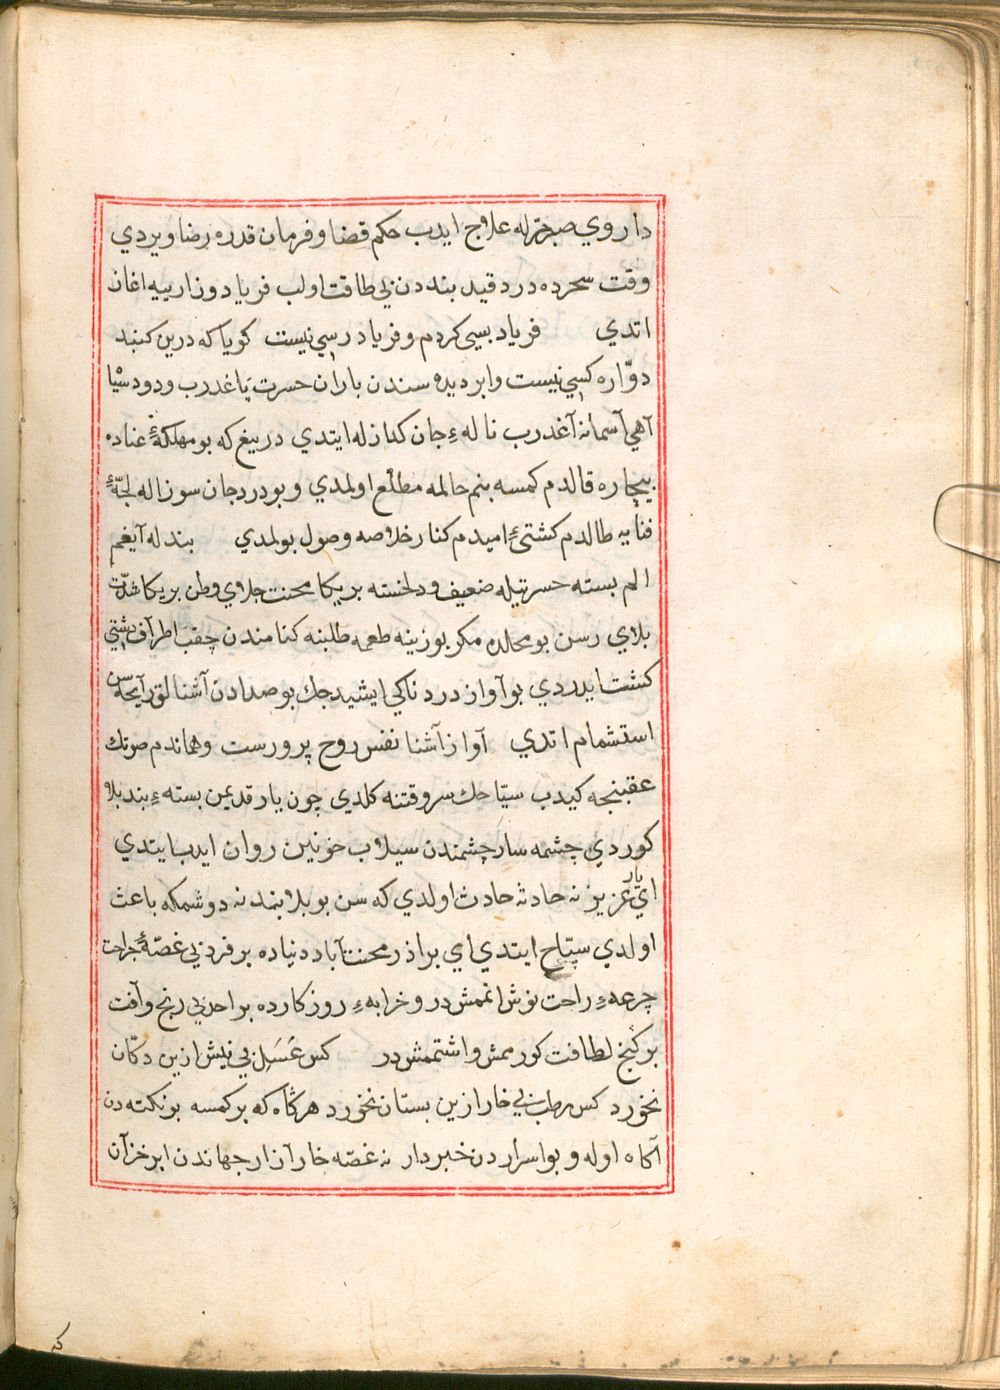 داروي صبرله علاج ايدب حكم قضا و فرمان قدره رضا ويردي
وقت سحرده درد قيد بنددن بي طاقت اولب فرياد و زاريه اغاز
اتدي فرياد بسي كردم و فرياد رسي نيست كويا كه درين كنبد
دوّاره كسي نيست و ابر ديده سندن باران حسرت ياغدرب و دود
آهي آسمانه آغدرب ناله ٔ جان كداز له ايتدي دريغ كه بو مهلكهٔ عناده
بيچاره قالدم كمسه بنم حالمه مطلع اولمدي و بو درد جان سوزاله لجّهٔ
فنايه طالدم كشتئ اميدم كنار خلاصه وصول بولمدي بند له آيغم
الم بسته حسرتيله ضعيف و دلخسته بر يكا محنت جلاي وطن بر يكا شدّت
بلاي رسن بو محلده مكر بوزينه طعمه طلبنه كنامندن چقب اطراف دشتي
كشت ايدردي بو آواز دردناكي ايشيدجك بو صدادن آشنالق رايحه سن
استشمام اتدي آواز آشنا نفس روح پرورست و هماندم صوتك
عقبنجه كيدب سيّاحك سر وقتنه كلدي چون يار قديمن بسته ٔ بند بلا
كوردي چشمه سار چشمندن سيلاب خونين روان ايدب ايتدي
اي يار عزيز نه حادثه حادث اولدي كه سن بو بلا بندنه دوشمكه باعث
اولدي سيّاح ايتدي اي براذر محنت آباد دنياده بر فرد بي غصّهٔ جراحت
جرعه ٔ راحت نوش اتممشدر و خرابه ٔ روزكارده بر احد بي رنج و آفت
بر كنج لطافت كورممش و اشتممشدر كس عسل بي نيش ازين دكّان
نخورد كس رطب بي خار ازين بستان نخورد هر كاه كه بر كمسه بو نكته دن
آكاه اوله و بو اسراردن خبردار نه غصّه خار آزار جهاندن ابر خزآن